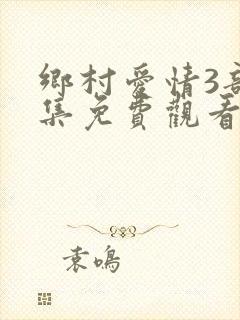 鄉村愛情3
集免費觀看
袁鳴